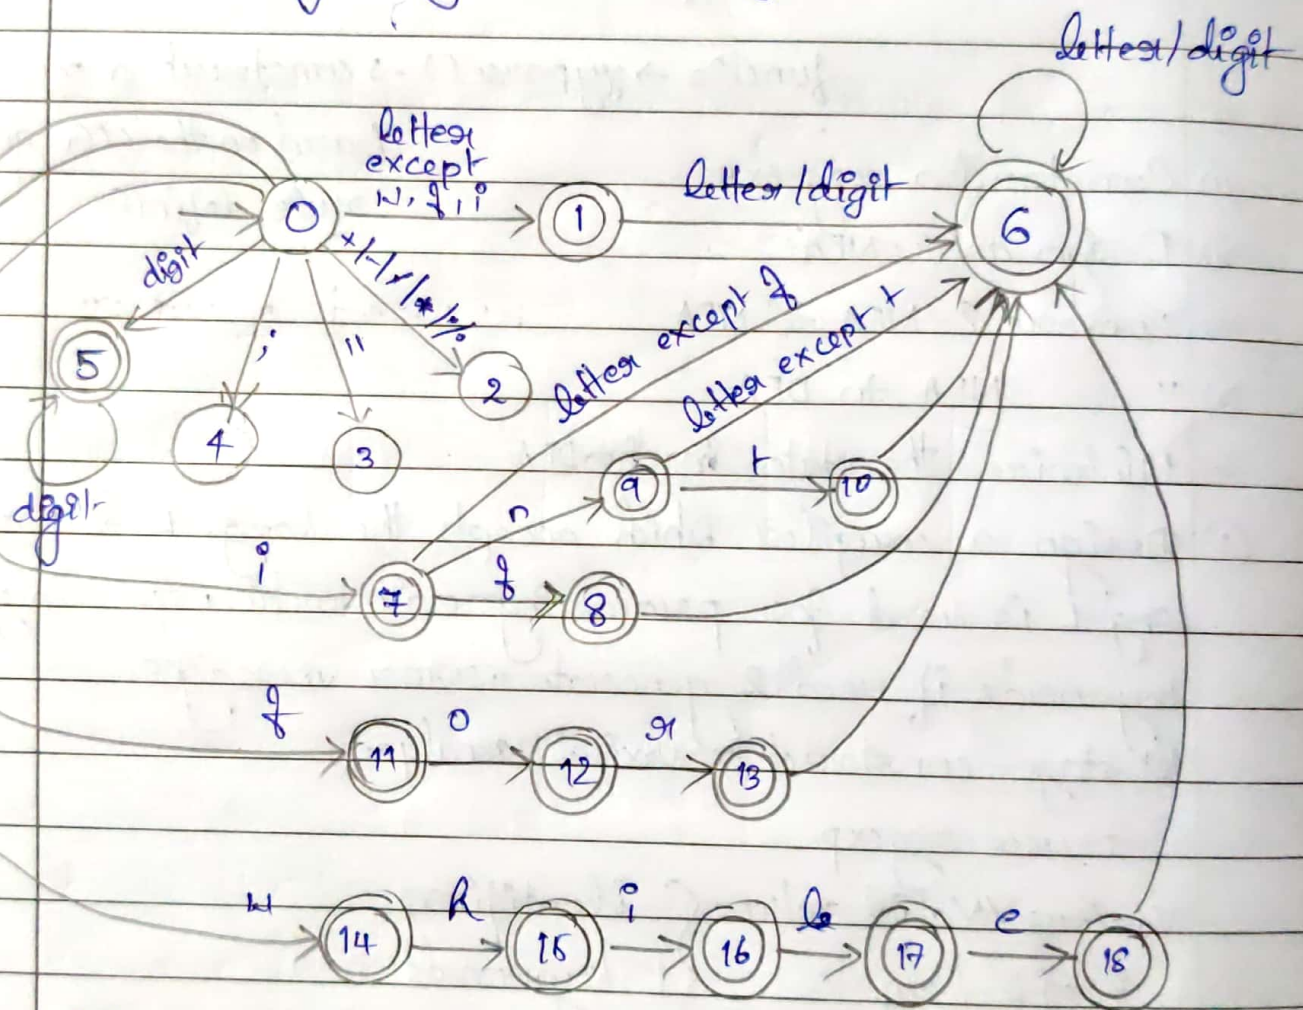 letter/digit
letter
except
w, f, i
0
1
letter/digit
6
digit
;
=
5
4
3
2
letter except f
letter except t
digit
i
7
n
9
t
10
f
8
f
11
o
12
r
13
w
14
h
15
i
16
l
17
e
18